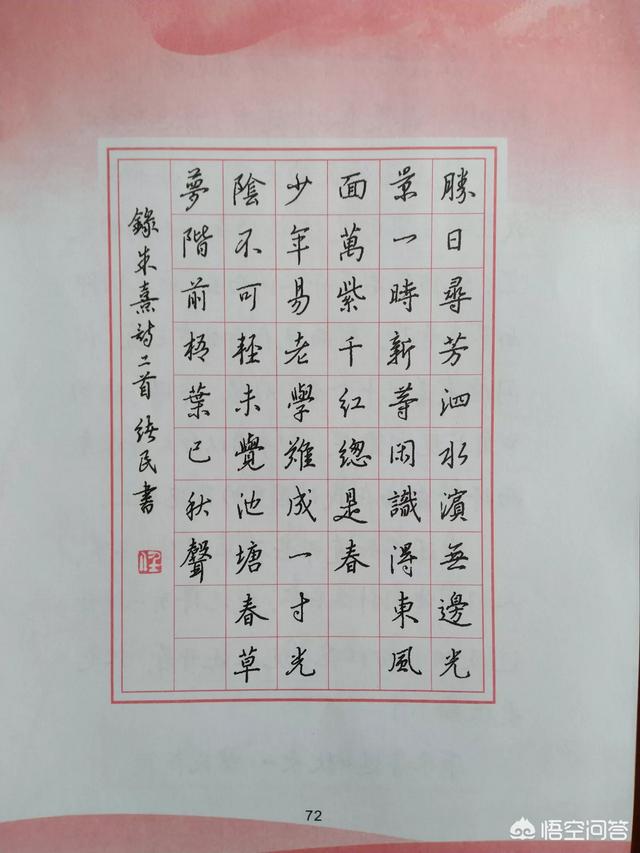 勝日尋芳泗水濱無邊光
景一時新等閑識得東風
面萬紫千紅總是春
少年易老學難成一寸光
陰不可輕未覺池塘春草
夢階前梧葉已秋聲
錄朱熹詩二首 民書
72
悟空问答